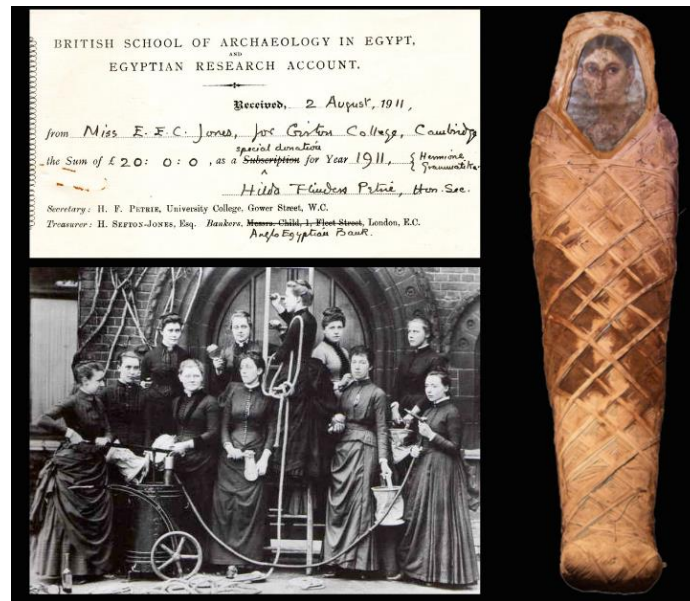 BRITISH SCHOOL OF ARCHAEOLOGY IN EGYPT,
AND
EGYPTIAN RESEARCH ACCOUNT.
Received, 2 August, 1911,
from Miss E. E. C. Jones, for Girton College, Cambridge
special donation
the Sum of £ 20: 0: 0, as a Subscription for Year 1911, { Hermione
Grammatike
Hilda Flinders Petrie, Hon. Sec.
Secretary: H. F. PETRIE, University College, Gower Street, W.C.
Treasurer: H. SEFTON-JONES, Esq. Bankers, Messrs. Child, 1, Fleet Street, London, E.C.
Anglo Egyptian Bank.